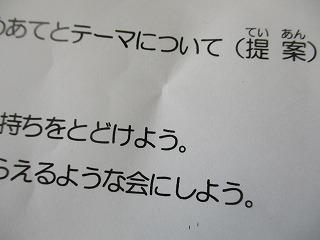 めあてとテーマについて(提案)
持ちをとどけよう。
らえるような会にしよう。